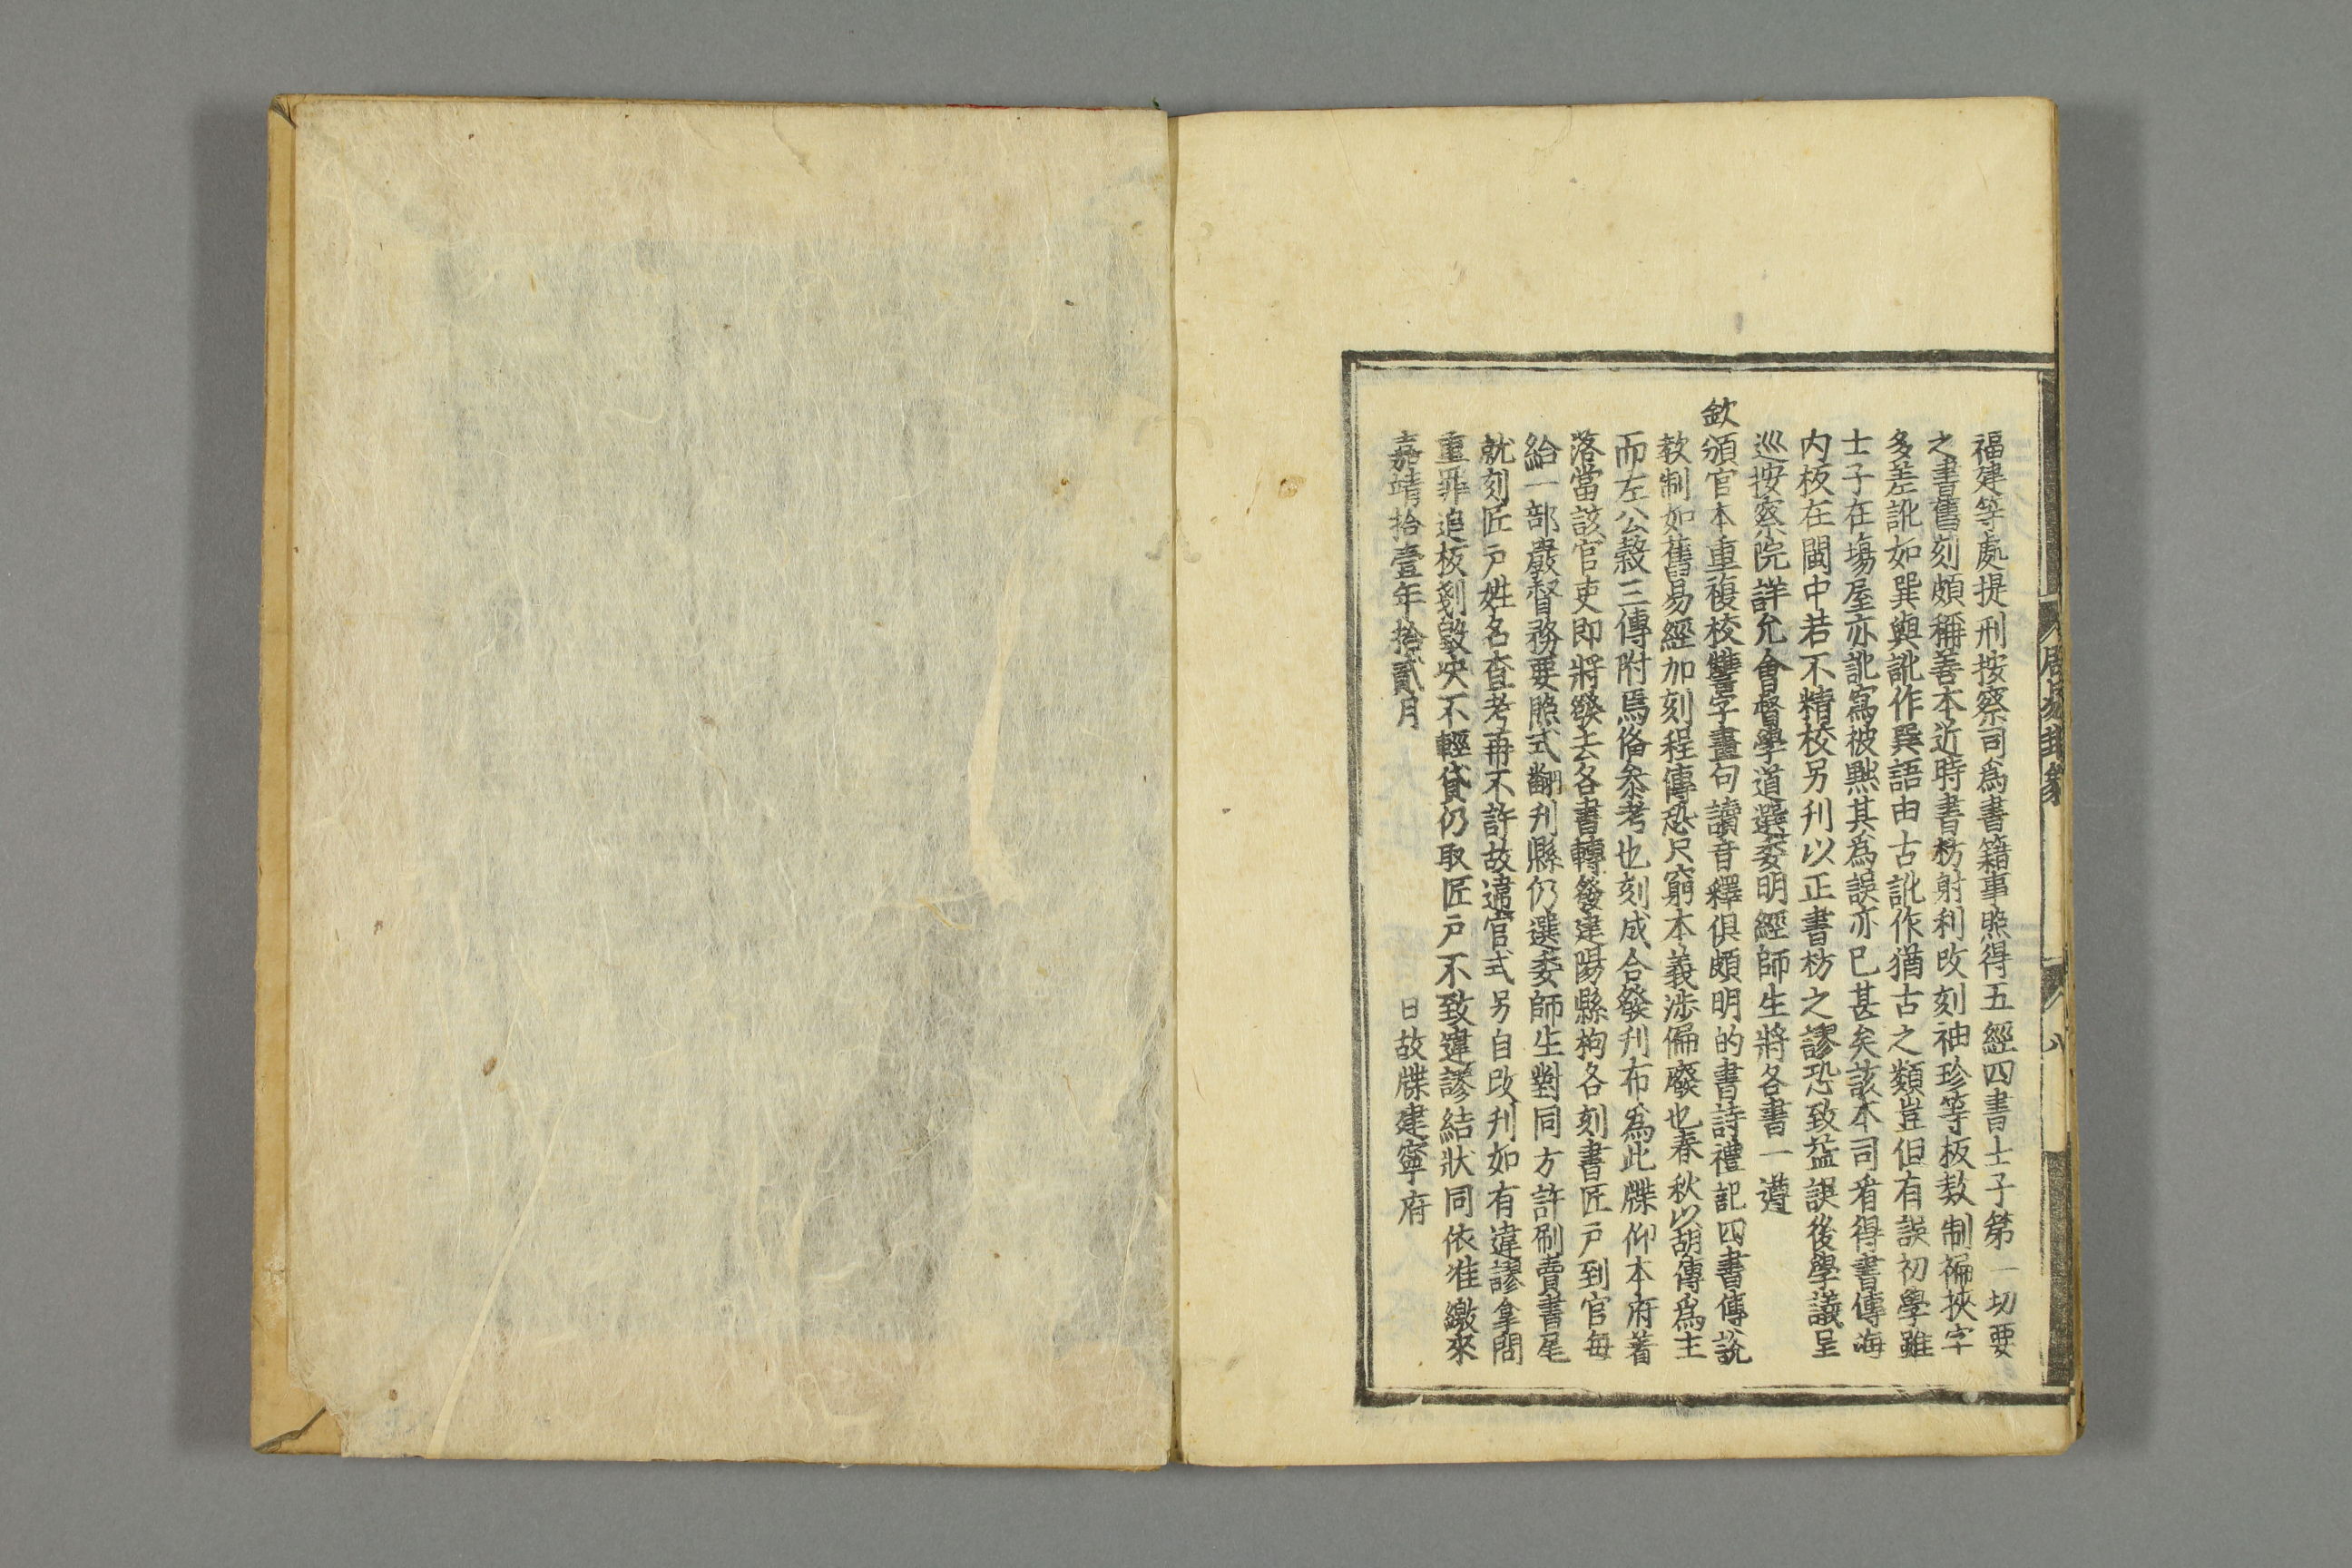 福建等處提刑按察司爲書籍事照得五經四書士子第一切要
之書舊刻頗稱善本近時書枋射利改刻袖珍等板欵制褊挾字
多差訛如巽與訛作巽語由古訛作猶古之類豈但有誤初學雖
士子在塲屋亦訛寫被黜其爲誤亦已甚矣該本司看得書傳海
内板在閩中若不精校另刊以正書枋之謬恐致益誤後學議呈
巡按察院詳允會督學道選委明經師生將各書一遵
欽頒官本重複校讐字畫句讀音釋俱頗明的書詩禮記四書傳說
欵制如舊易經加刻程傳恐只窮本義涉偏廢也春秋以胡傳爲主
而左公穀三傳附焉俻參考也刻成合發刊布爲此牒仰本府著
落當該官吏即將發去各書轉發建陽縣拘各刻書匠戶到官每
給一部嚴督務要照式翻刊縣仍選委師生對同方許刷賣書尾
就刻匠戶姓名查考再不許故違官式另自改刊如有違謬拿問
重罪追板剗毀决不輕貸仍取匠戶不致違謬結狀同依准繳來
嘉靖拾壹年拾貳月 日故牒建寧府
周易
八